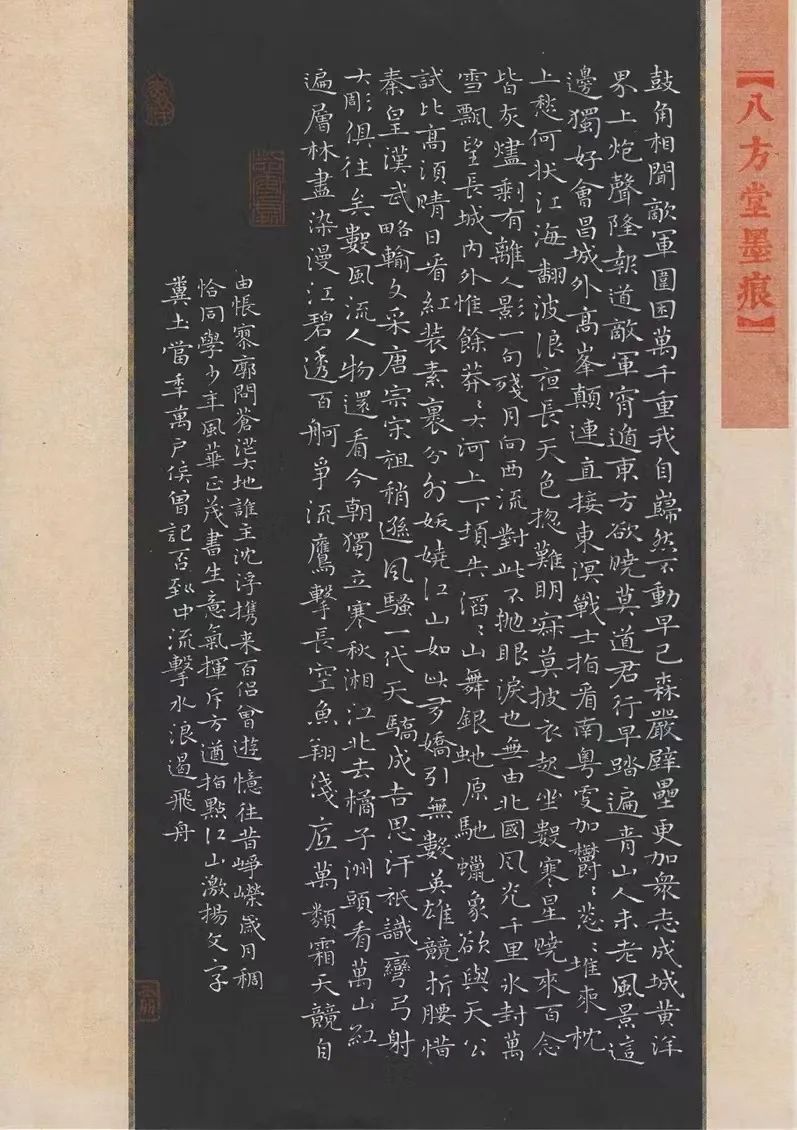 【八方堂墨痕】
鼓角相聞敵軍圍困萬千重我自巋然不動早已森嚴壁壘更加衆志成城黄洋
界上炮聲隆報道敵軍宵遁東方欲曉莫道君行早踏遍青山人未老風景這
邊獨好會昌城外高峯顛連直接東溟戰士指看南粤更加鬱〻葱〻堆來枕
上愁何狀江海翻波浪夜長天色揔難明寂莫披衣起坐數寒星曉來百念
皆灰燼剩有離人影一句殘月向西流對此不抛眼淚也無由北國風光千里冰封萬
雪飄望長城内外惟餘莽〻大河上下頓失滔〻山舞銀蛇原馳蠟象欲與天公
試比高須晴日看紅装素裹分外妖嬈江山如此多嬌引無數英雄競折腰惜
秦皇漢武略輸文采唐宗宋祖稍遜風騷一代天驕成吉思汗衹識彎弓射
大彫俱往矣數風流人物還看今朝獨立寒秋湘江北去橘子洲頭看萬山紅
遍層林盡染漫江碧透百舸爭流鷹擊長空魚翔淺底萬類霜天競自
由悵寥廓問蒼茫大地誰主沈浮攜来百侣曾遊憶往昔崢嶸歲月稠
恰同學少年風華正茂書生意氣揮斥方遒指點江山激揚文字
糞土當年萬户侯曾記否到中流擊水浪遏飛舟